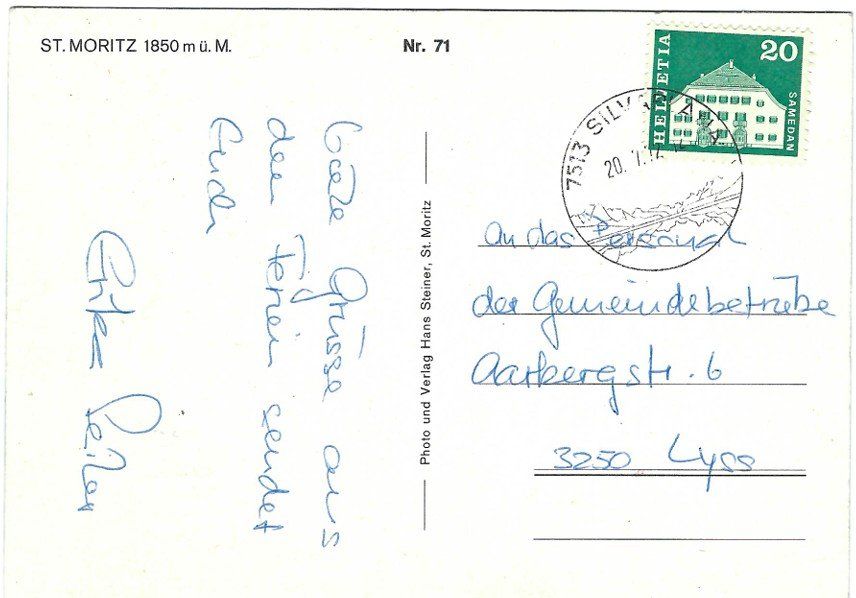 ST. MORITZ 1850 m ü. M.
Nr. 71
HELVETIA
20
SAMEDAN
7513 SILVAPLANA
20. 7.72
Gute Grüsse aus
den Ferien sendet
Euch
Photo und Verlag Hans Steiner, St. Moritz
An das Personal
der Gemeindebetriebe
Aarbergstr. 6
3250 Lyss